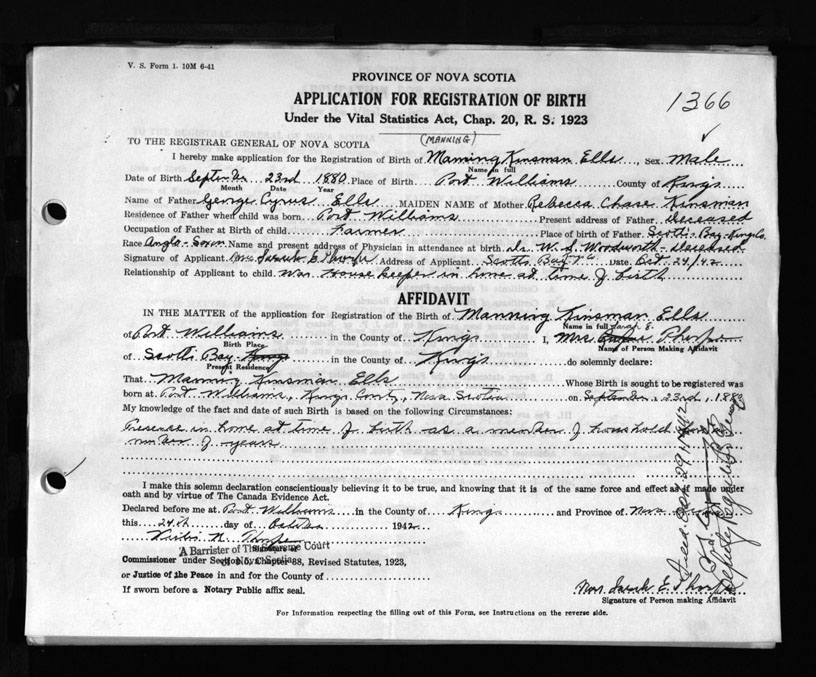 V. S. Form 1. 10M 6-41
PROVINCE OF NOVA SCOTIA
APPLICATION FOR REGISTRATION OF BIRTH
1366
Under the Vital Statistics Act, Chap. 20, R. S. 1923
TO THE REGISTRAR GENERAL OF NOVA SCOTIA
(MANNING)
I hereby make application for the Registration of Birth of Manning Kinsman Ells, Sex Male
Name in full
Date of Birth September 23rd 1880 Place of Birth Port Williams County of Kings
Month Date Year
Name of Father George Cyrus Ells MAIDEN NAME of Mother Rebecca Chase Kinsman
Residence of Father when child was born Port Williams Present address of Father deceased
Occupation of Father at Birth of child Farmer Place of birth of Father Scotts Bay Kings Co.
Race Anglo-Saxon Name and present address of Physician in attendance at birth Dr. W. S. Woodworth - deceased
Signature of Applicant Mrs Sarah E Thorpe Address of Applicant Scotts Bay N.S. Date Oct 24/42
Relationship of Applicant to child was House keeper in home at time of birth
AFFIDAVIT
IN THE MATTER of the application for Registration of the Birth of Manning Kinsman Ells
Name in full Sarah E.
of Port Williams in the County of Kings I, Mrs Thorpe
Birth Place Name of Person Making Affidavit
of Scotts Bay Kings in the County of Kings do solemnly declare:
Present Residence
That Manning Kinsman Ells Whose Birth is sought to be registered was
born at Port Williams, Kings County, Nova Scotia on September, 23rd, 1880
My knowledge of the fact and date of such Birth is based on the following Circumstances:
Presence in home at time of birth as a member of household for
number of years
I make this solemn declaration conscientiously believing it to be true, and knowing that it is of the same force and effect as if made under
oath and by virtue of The Canada Evidence Act.
Declared before me at Port Williams in the County of Kings and Province of Nova Scotia
this 24th day of October 1942
Thorpe
A Barrister of The Supreme Court
of Nova Scotia
Commissioner under Section 5, Chapter 38, Revised Statutes, 1923,
or Justice of the Peace in and for the County of
If sworn before a Notary Public affix seal.
Mrs. Sarah E. Thorpe
Signature of Person making Affidavit
For Information respecting the filling out of this Form, see Instructions on the reverse side.
Deputy Registrar General